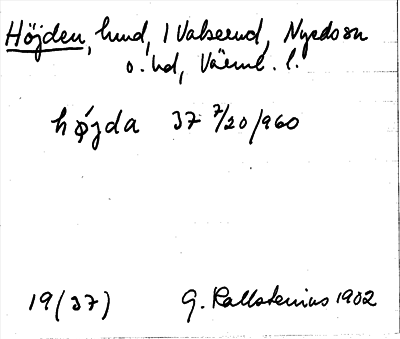 Höjden, hmd, 1 Valserud, Nyedssn
o. hd, Värml. l.
hǿjda 37 7/20/960
19 (37) G. Kallstenius 1902